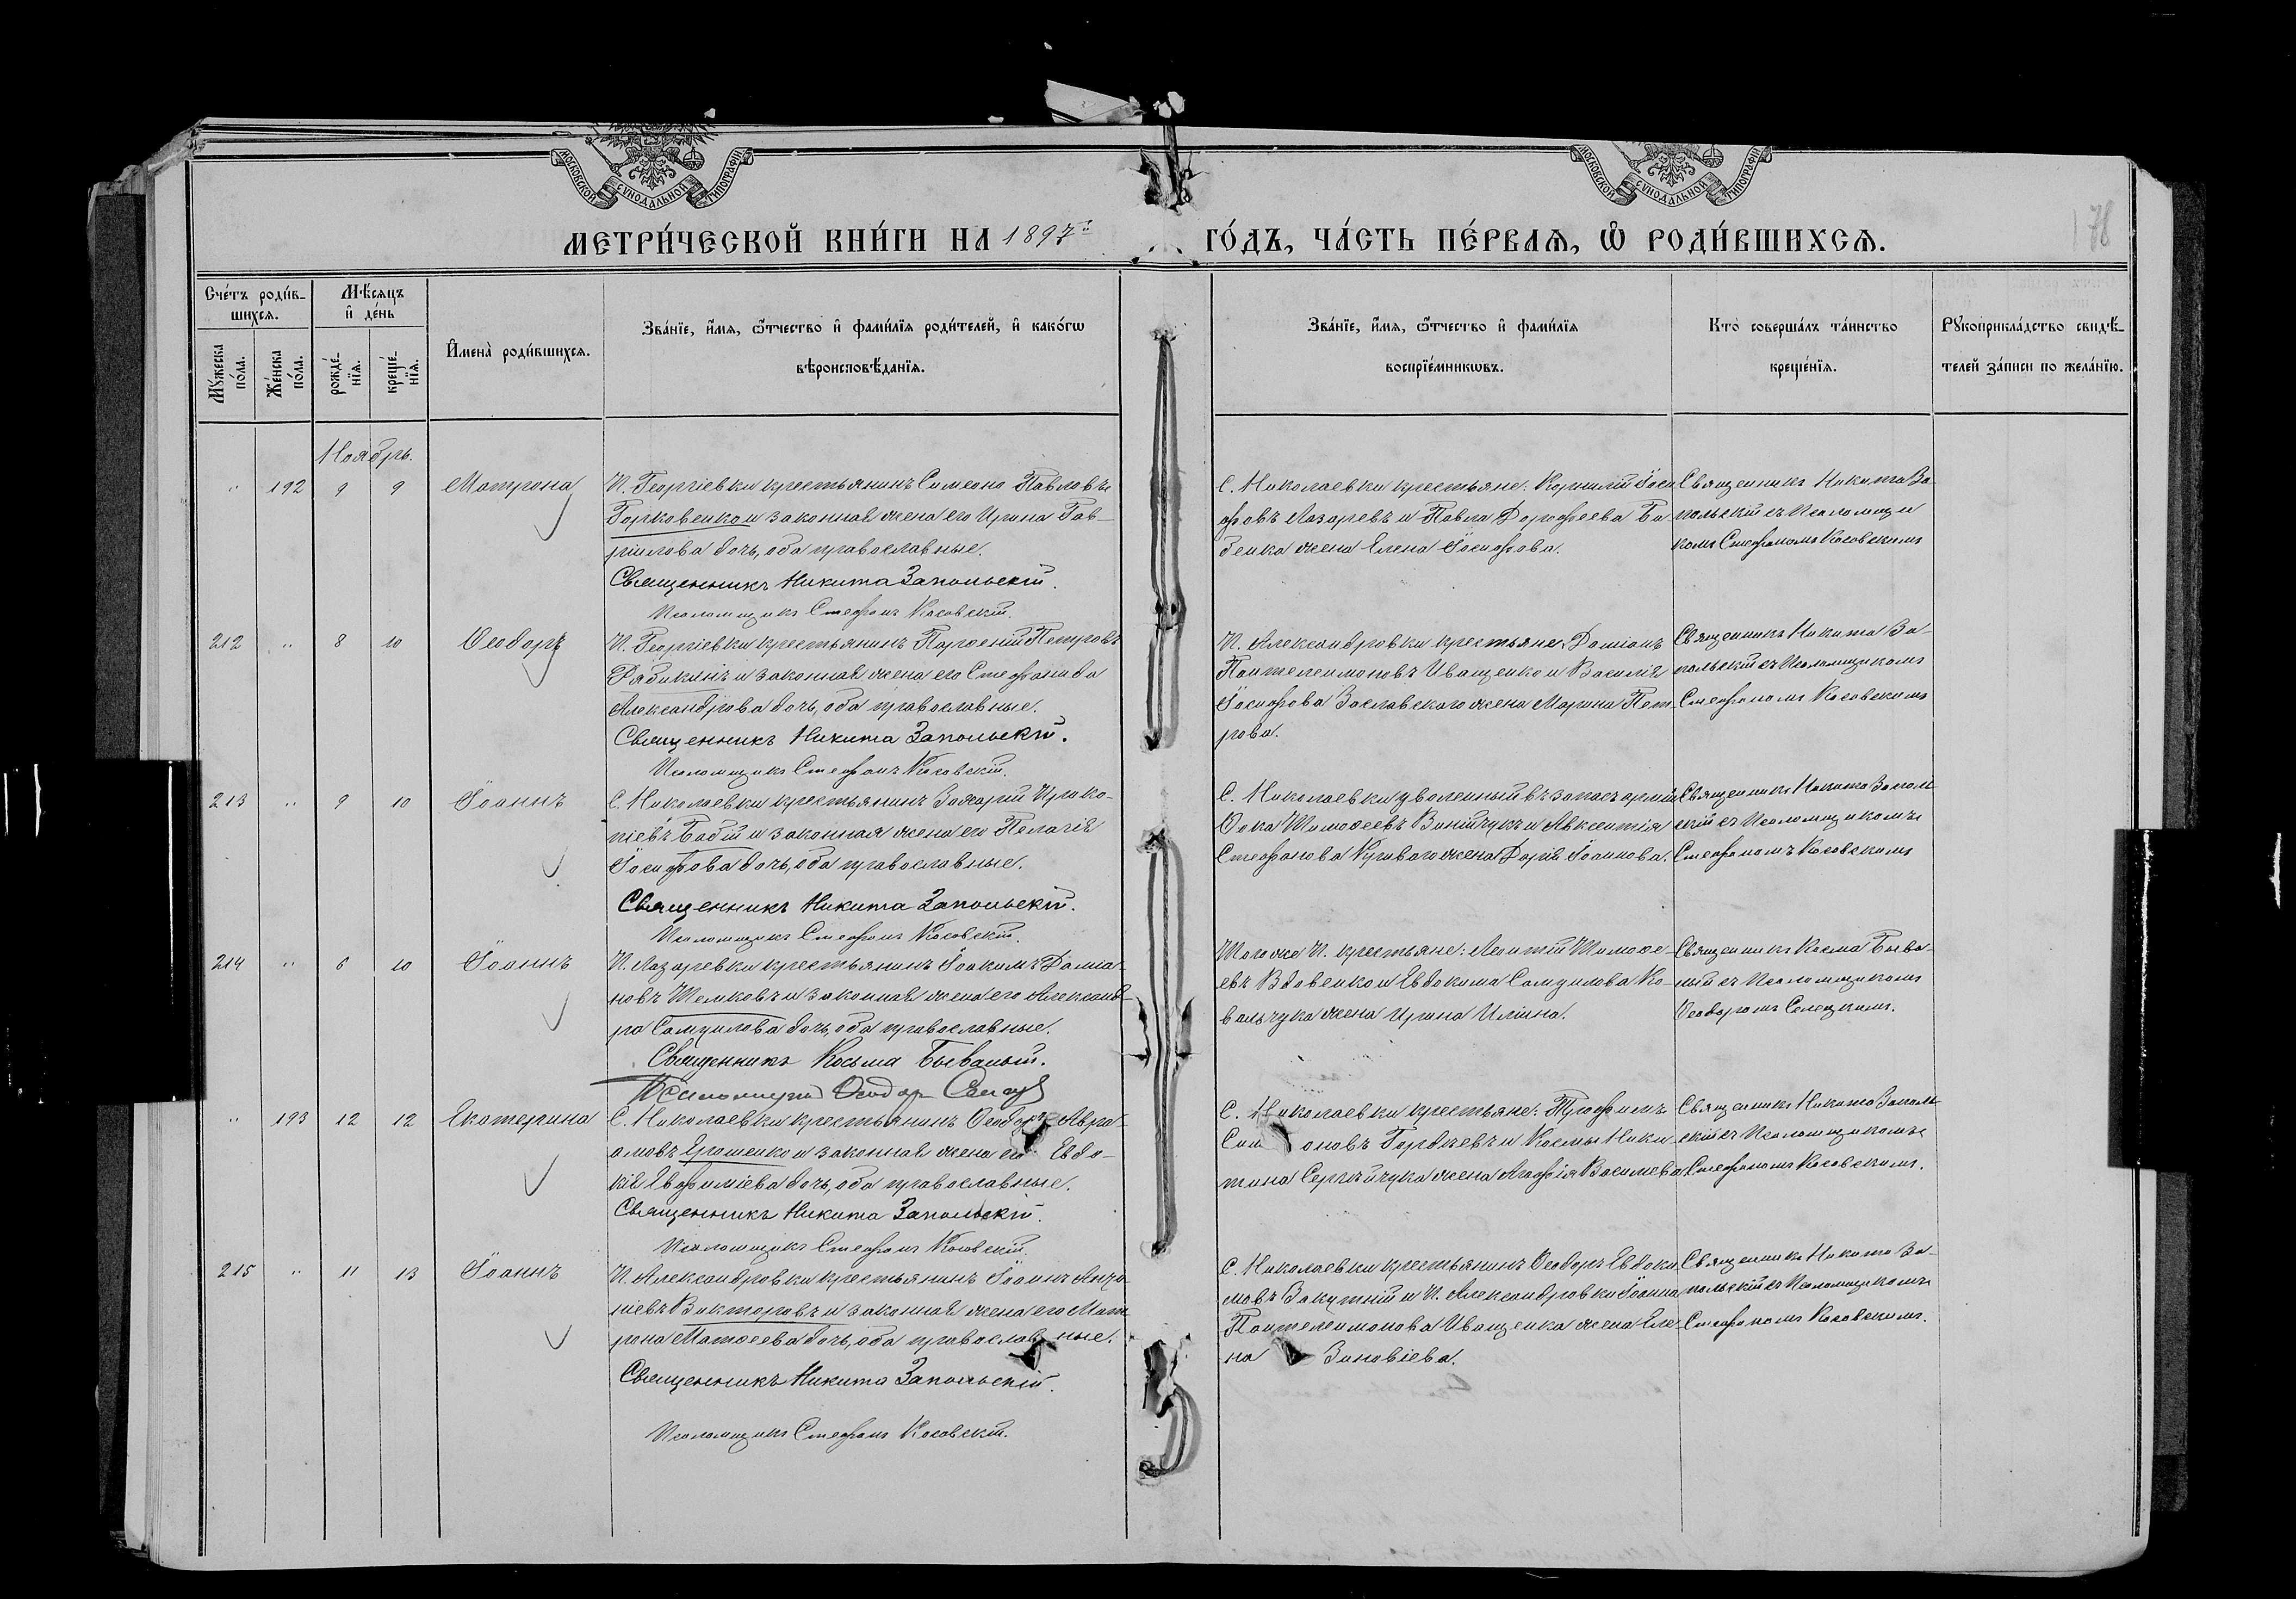 МОСКОВСКОЙ СУНОДАЛЬНОЙ ТИПОГРАФІИ
МОСКОВСКОЙ СУНОДАЛЬНОЙ ТИПОГРАФІИ
МЕТРИ́ЧЕСКОЙ КНИ́ГИ НА 1897й
ГО́ДЪ, ЧА́СТЬ ПЕ́РВАѦ, Ѡ҆ РОДИ́ВШИХСѦ.
178
Сче́тъ роди́в-
шихсѧ.
Мꙋ́жеска
по́ла.
Же́нска
по́ла.
Мѣ́сѧцъ
и҆ де́нь
рожде́-
нїѧ.
креще́-
нїѧ.
И҆мена̀ роди́вшихсѧ.
Зва́нїе, и҆́мѧ, ѻ҆́тчество и҆ фами́лїѧ роди́телей, и҆ како́гѡ
вѣроисповѣ́данїѧ.
Зва́нїе, и҆́мѧ, ѻ҆́тчество и҆ фами́лїѧ
воспрїе́мникѡвъ.
Кто̀ соверша́лъ та́инство
креще́нїѧ.
Рꙋкоприкла́дство свидѣ́-
телей за́писи по жела́нїю.
Ноябрь.
" 192 9 9 Матрона
П. Георгіевки крестьянинъ Симеонъ Павловъ
Горковенко и законная жена его Ирина Гав-
ріилова дочь, оба православные.
Священникъ Никита Запольскій.
Псаломщикъ Стефанъ Косовскій.
С. Николаевки крестьяне: Корнилій Іоси
фовъ Лазаревъ и Павла Дорофеева Ба-
бенка жена Елена Іосифова.
Священникъ Никита За
польскій съ Псаломщи
комъ Стефаномъ Косовскимъ
212 " 8 10 Ѳеодоръ
П. Георгіевки крестьянинъ Парѳеній Петровъ
Рябикинъ и законная жена его Стефанида
Александрова дочь, оба православные.
Священникъ Никита Запольскій.
Псаломщикъ Стефанъ Косовскій.
П. Александровки крестьяне: Даміанъ
Пантелеимоновъ Иващенко и Василія
Іосифова Заславскаго жена Марина Пет-
рова.
Священникъ Никита За-
польскій съ Псаломщикомъ
Стефаномъ Косовскимъ
213 " 9 10 Іоаннъ
С. Николаевки крестьянинъ Захарій Проко-
піевъ Бабій и законная жена его Пелагія
Іосифова дочь, оба православные.
Священникъ Никита Запольскій.
Псаломщикъ Стефанъ Косовскій.
С. Николаевки уволенный въ запасъ арміи
Ѳока Тимоѳеевъ Винійчукъ и Авксентія
Стефанова Криваго жена Дарія Іоаннова.
Священникъ Никита Заполь
скій съ Псаломщикомъ
Стефаномъ Косовскимъ
214 " 6 10 Іоаннъ
П. Лазаревки крестьянинъ Іоакимъ Даміа-
новъ Темковъ и законная жена его Александ-
ра Самуилова дочь, оба православные.
Священникъ Косьма Бывалый.
Псаломщикъ Ѳеодоръ
Того же П. крестьяне: Леонтій Тимоѳе-
евъ Вдовенко и Евдокима Самуилова Ко-
вальчука жена Ирина Иліина.
Священникъ Косма Быва-
лый съ Псаломщикомъ
Ѳеодоромъ Селецкимъ.
" 193 12 12 Екатерина
С. Николаевки крестьянинъ Ѳеодоръ Авра-
амовъ Ерошенко и законная жена его Евдо-
кія Евфиміева дочь, оба православные.
Священникъ Никита Запольскій.
Псаломщикъ Стефанъ Косовскій.
С. Николаевки крестьяне: Трофимъ
Сим оновъ Гордѣевъ и Космы Ники-
тина Сергѣйчука жена Агафія Василіева
Священникъ Никита Заполь
скій съ Псаломщикомъ
Стефаномъ Косовскимъ.
215 " 11 13 Іоаннъ
П. Александровки крестьянинъ Іоаннъ
ніевъ Викторовъ и законная жена его Мат
рона Матѳеева дочь, оба православные.
Священникъ Никита Запольскій.
Псаломщикъ Стефанъ Косовскій.
С. Николаевки крестьянинъ Ѳеодоръ Евдоки
мовъ Закутній и П. Александровки Іоанна
Пантелеимонова Иващенка жена Еле-
на Зиновіева.
Священникъ Никита За-
польскій съ Псаломщикомъ
Стефаномъ Косовскимъ.